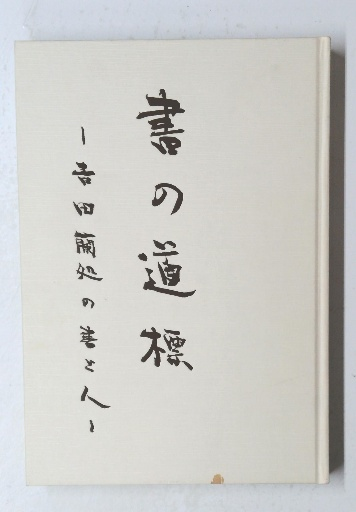 書の道標
―吉田蘭処の書と人―